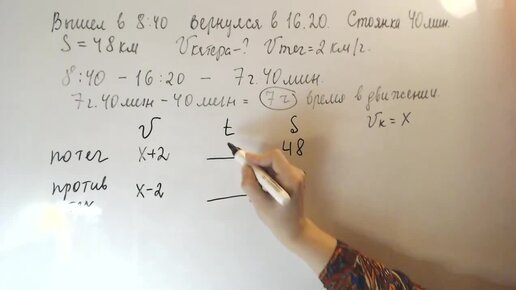 Вышел в 8:40 вернулся в 16.20. Стоянка 40мин.
S = 48км Vкатера-? Vтеч=2км/г.
8:40 - 16:20 - 7г.40мин.
7г.40мин - 40мин = 7г время в движении.
V t S Vк = x
по теч x+2 48
против x-2